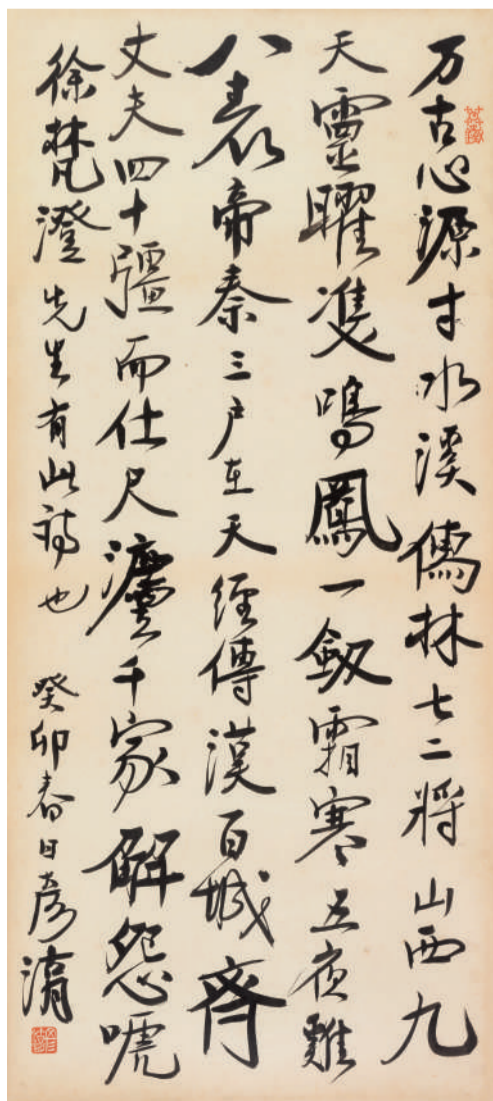 万古心源寸水溪儒林七二將山西九
天靈曜雙鳴鳳一劔霜寒五夜雞
八表帝秦三户在天經傳漢百城齊
丈夫四十彊而仕尺灋千家解怨嗁
徐梵澄先生有此詩也 癸卯春日彥湑